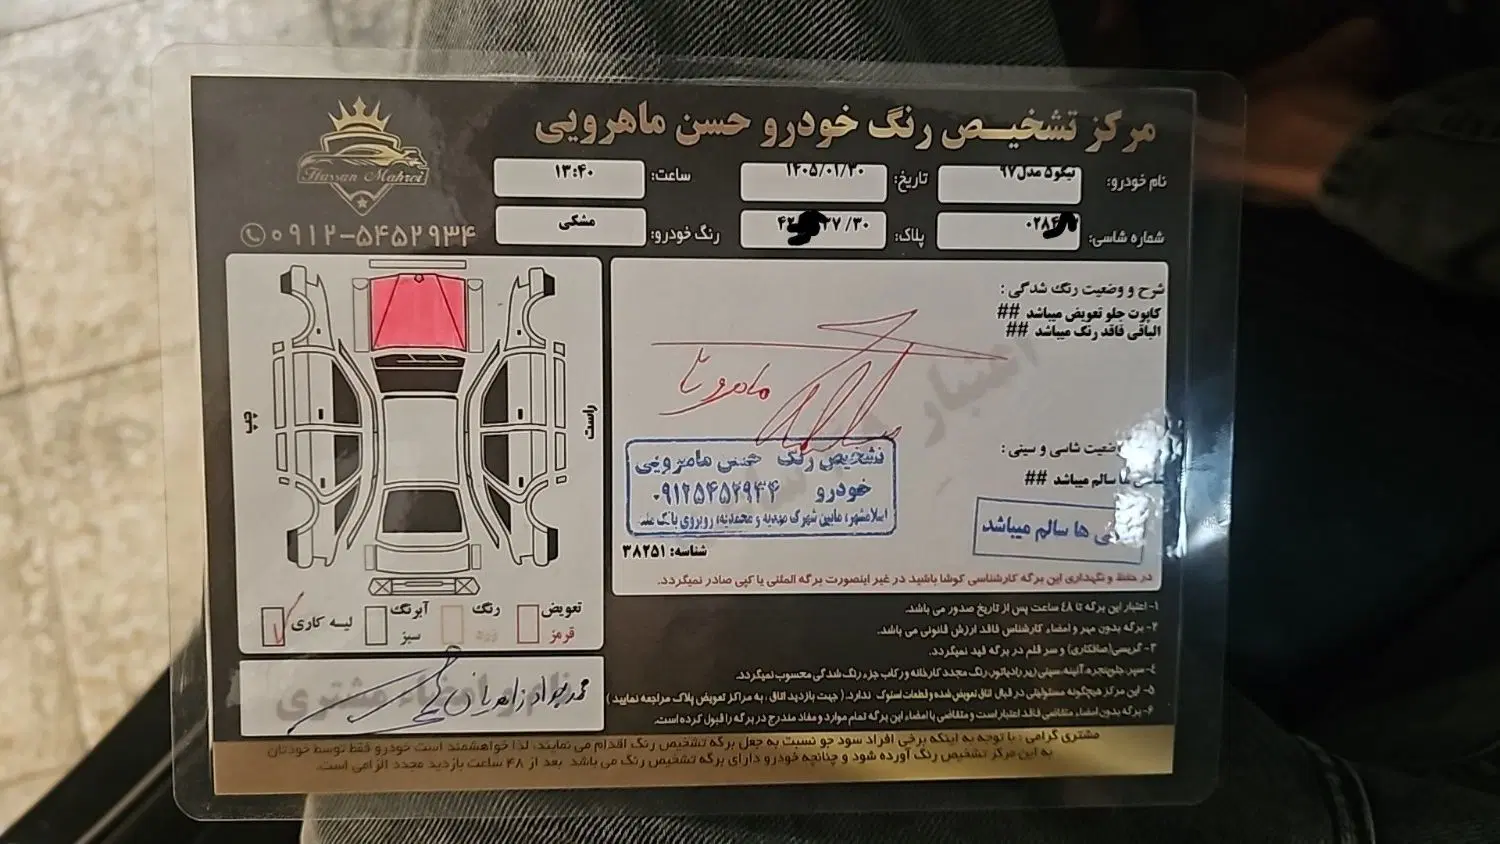 مرکز تشخیص رنگ خودرو حسن ماهرویی
Hassan Mahroi
۰۹۱۲-۵۴۵۲۹۳۴
نام خودرو: تیگو۵ مدل۹۷
تاریخ: ۱۴۰۵/۰۱/۳۰
ساعت: ۱۳:۴۰
شماره شاسی:
پلاک:
رنگ خودرو: مشکی
شرح و وضعیت رنگ شدگی :
کاپوت جلو تعویض میباشد ##
الباقی فاقد رنگ میباشد ##
چپ
راست
وضعیت شاسی و سینی :
ها سالم میباشد ##
ها سالم میباشد
تشخیص رنگ حسن ماهرویی
خودرو ۰۹۱۲۵۴۵۲۹۳۴
اسلامشهر، مابین شهرک مهدیه و محمدیه، روبروی بانک ملت
شناسه: ۳۸۲۵۱
در حفظ و نگهداری این برگه کارشناسی کوشا باشید در غیر اینصورت برگه المثنی یا کپی صادر نمیگردد.
تعویض رنگ آبرنگ لیسه کاری
قرمز زرد سبز
محمدجواد زاهدیان
۱- اعتبار این برگه تا ۴۸ ساعت پس از تاریخ صدور می باشد.
۲- برگه بدون مهر و امضاء کارشناس فاقد ارزش قانونی می باشد.
۳- گریسی(صافکاری) و سر قلم در برگه قید نمیگردد.
۴- سپر، جلوپنجره، آئینه، سینی زیر رادیاتور، رنگ مجدد کارخانه و رکاب جزء رنگ شدگی محسوب نمیگردد.
۵- این مرکز هیچگونه مسئولیتی در قبال اتاق تعویض شده و قطعات استوک ندارد. ( جهت بازدید اتاق ، به مراکز تعویض پلاک مراجعه نمایید )
۶- برگه بدون امضاء متقاضی فاقد اعتبار است و متقاضی با امضاء این برگه تمام موارد و مفاد مندرج در برگه را قبول کرده است.
مشتری گرامی : با توجه به اینکه برخی افراد سود جو نسبت به جعل برگه تشخیص رنگ اقدام می نمایند، لذا خواهشمند است خودرو فقط توسط خودتان
به این مرکز تشخیص رنگ آورده شود و چنانچه خودرو دارای برگه تشخیص رنگ می باشد بعد از ۴۸ ساعت بازدید مجدد الزامی است.